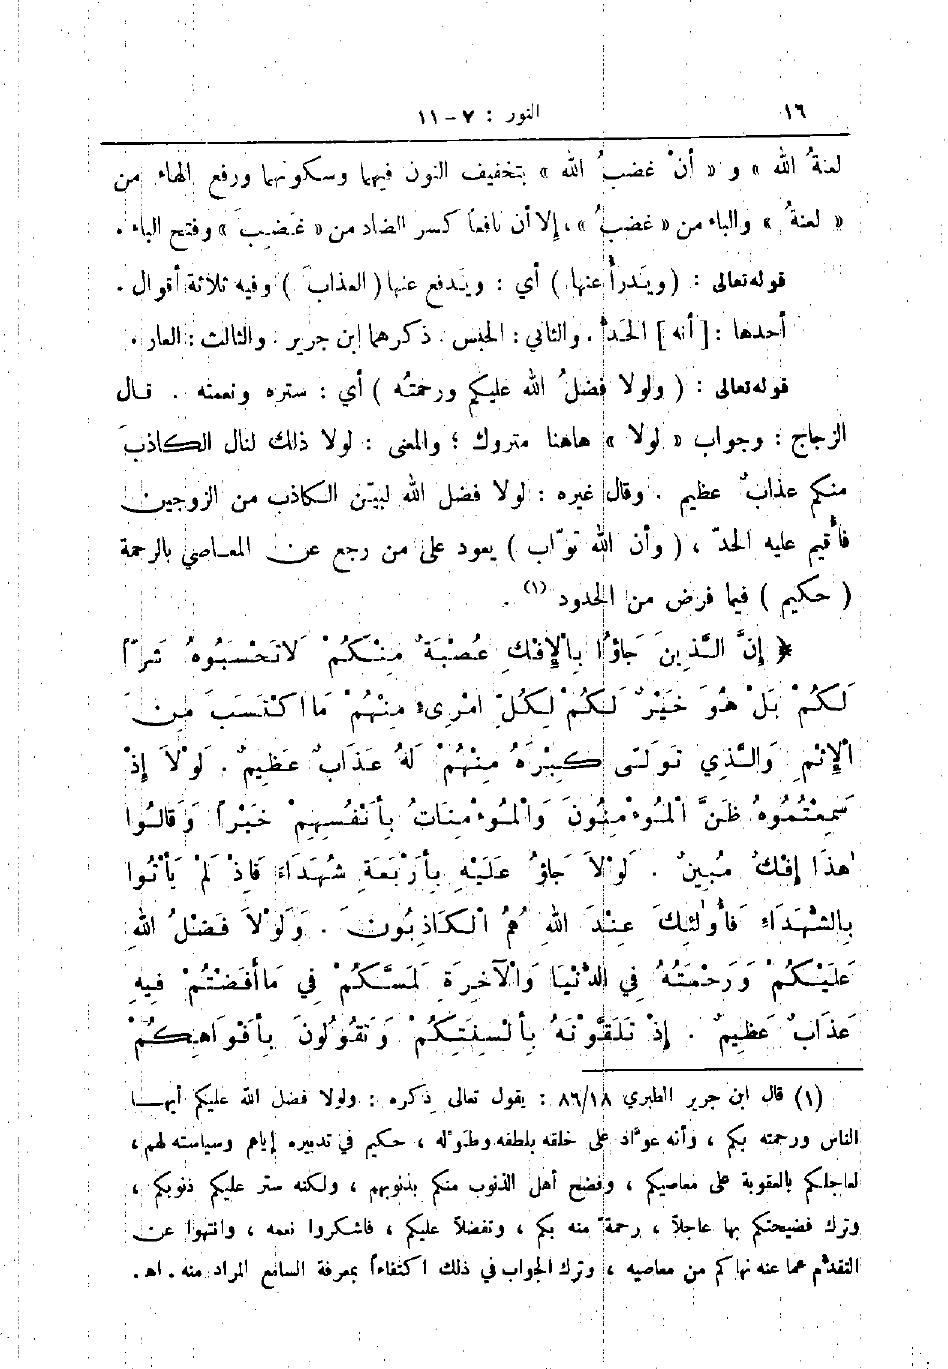 ١٦ النور : ٧ – ١١
لعنةُ الله » و « أنْ غضبُ الله » بتخفيف النون فيهما وسكونهما ورفع الهاء من
« لعنةُ » والباء من « غضبُ » ، إلا أن نافعاً كسر الضاد من « غَضِبَ » وفتح الباء .
قوله تعالى : ( ويَدرأُ عنها ) أي : ويَدفع عنها ( العذابَ ) وفيه ثلاثة أقوال .
أحدها : [ أنه ] الحَدُّ . والثاني : الحبس . ذكرهما ابن جرير . والثالث : العار .
قوله تعالى : ( ولولا فضلُ الله عليكم ورحمتُه ) أي : ستره ونعمته . قال
الزجاج : وجواب « لولا » هاهنا متروك ؛ والمعنى : لولا ذلك لنال الكاذبَ
منكم عذابٌ عظيم . وقال غيره : لولا فضل الله لبيّن الكاذب من الزوجين
فأُقيم عليه الحدّ ، ( وأن الله توّاب ) يعود على من رجع عن المعاصي بالرحمة
( حكيم ) فيما فرض من الحدود (١) .
﴿ إِنَّ الَّذِينَ جَاؤُا بِالْإِفْكِ عُصْبَةٌ مِنْكُمْ لَاتَحْسَبُوهُ شَرّاً
لَكُمْ بَلْ هُوَ خَيْرٌ لَكُمْ لِكُلِّ امْرِىءٍ مِنْهُمْ مَا اكْتَسَبَ مِنَ
الْإِثْمِ وَالَّذِي تَوَلَّى كِبْرَهُ مِنْهُمْ لَهُ عَذَابٌ عَظِيمٌ . لَوْلَا إِذْ
سَمِعْتُمُوهُ ظَنَّ الْمُؤْمِنُونَ وَالْمُؤْمِنَاتُ بِأَنْفُسِهِمْ خَيْراً وَقَالُوا
هٰذَا إِفْكٌ مُبِينٌ . لَوْلَا جَاؤُ عَلَيْهِ بِأَرْبَعَةِ شُهَدَاءَ فَإِذْ لَمْ يَأْتُوا
بِالشُّهَدَاءِ فَأُولٰئِكَ عِنْدَ اللهِ هُمُ الْكَاذِبُونَ . وَلَوْلَا فَضْلُ اللهِ
عَلَيْكُمْ وَرَحْمَتُهُ فِي الدُّنْيَا وَالْآخِرَةِ لَمَسَّكُمْ فِي مَا أَفَضْتُمْ فِيهِ
عَذَابٌ عَظِيمٌ . إِذْ تَلَقَّوْنَهُ بِأَلْسِنَتِكُمْ وَتَقُولُونَ بِأَفْوَاهِكُمْ
(١) قال ابن جرير الطبري ٨٦/١٨ : يقول تعالى ذكره : ولولا فضل الله عليكم أيها
الناس ورحمته بكم ، وأنه عوّاد على خلقه بلطفه وطَوْله ، حكيم في تدبيره إياهم وسياسته لهم ،
لعاجلكم بالعقوبة على معاصيكم ، وفضح أهل الذنوب منكم بذنوبهم ، ولكنه ستر عليكم ذنوبكم ،
وترك فضيحتكم بها عاجلاً ، رحمةً منه بكم ، وتفضلاً عليكم ، فاشكروا نعمه ، وانتهوا عن
التقدُّم عما عنه نهاكم من معاصيه ، وترك الجواب في ذلك اكتفاءاً بمعرفة السامع المراد منه . اهـ .